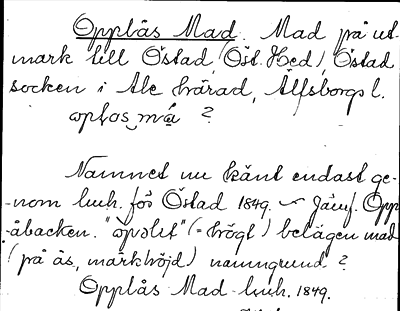 Opplås Mad. Mad på ut-
mark till Östad (Öst. Hed), Östad
socken i Ale härad, Älfsborgs l.
optos má ?
Namnet nu känt endast ge-
-nom luuh. för Östad 1849. ~ Jämf. Opp
-åbacken. "öpslet" (= högt) belägen mad
(på ås, markhöjd) namngrund ?
Opplås Mad luuh. 1849.